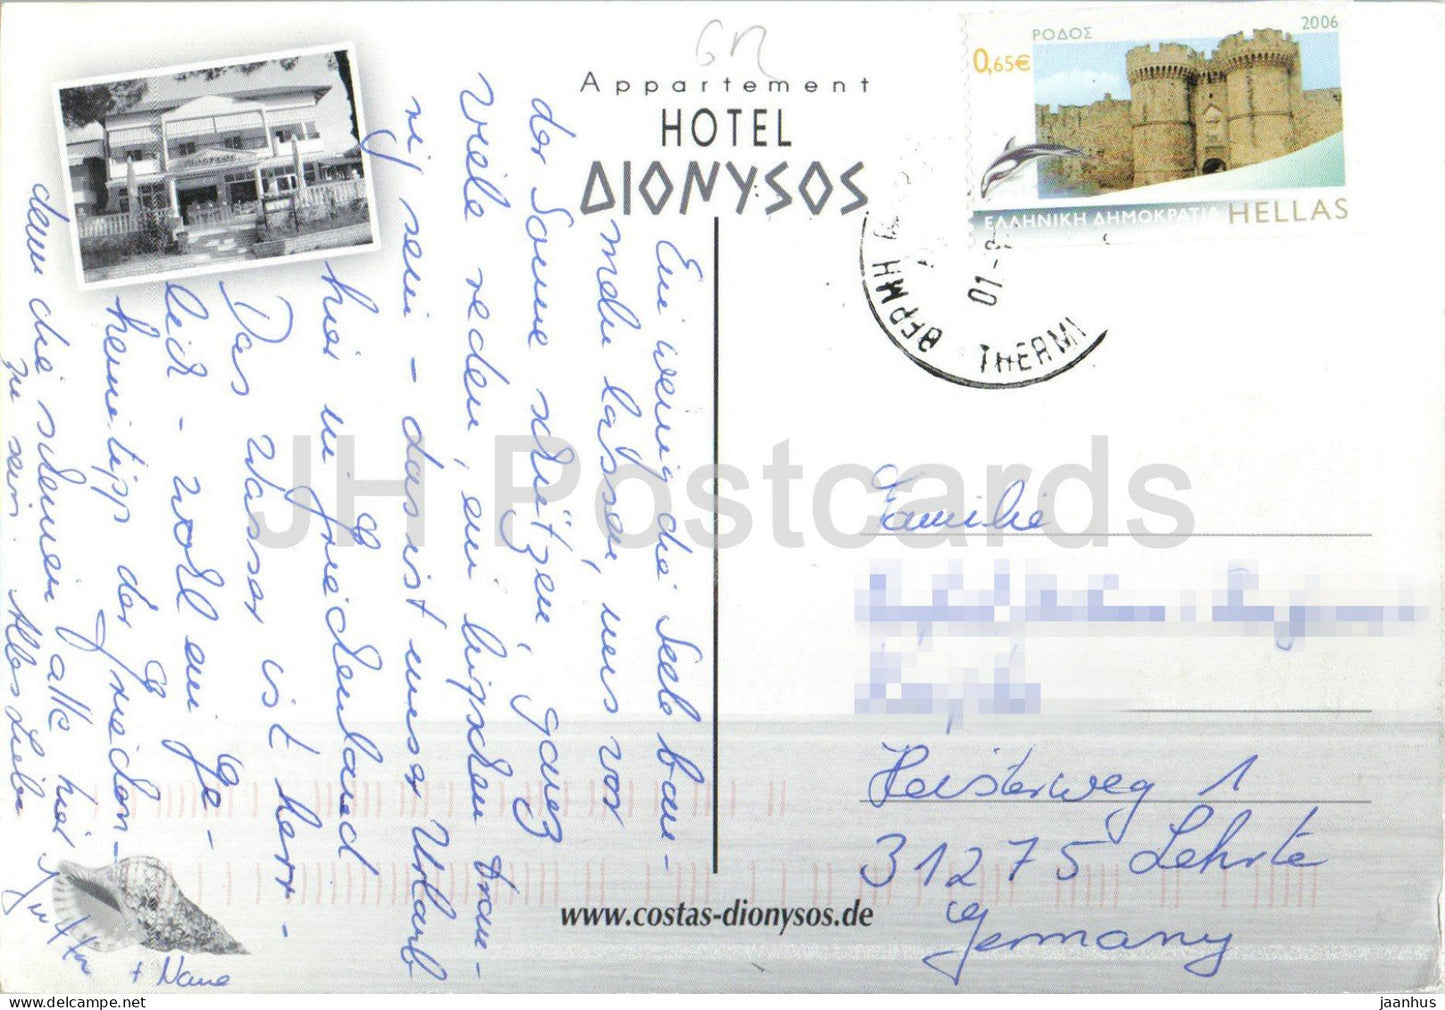 GR
Appartement
HOTEL
DIONYSOS
ΡΟΔΟΣ
2006
0,65€
ΕΛΛΗΝΙΚΗ ΔΗΜΟΚΡΑΤΙΑ HELLAS
ΘΕΡΜΗ THERMI
01-
Ein wenig die Seele bau-
meln lassen, uns vor
der Sonne schützen, ganz
viele reden, ein bißchen trau-
rig sein - das ist unser Urlaub
hier in Griechenland
Das Wasser ist herr-
lich - wohl ein Ge-
heimtipp der Griechen -
denn die scheinen alle hier
zu sein. Alles Liebe
Jutta
+ Nane
Familie
Heisterweg 1
31275 Lehrte
Germany
www.costas-dionysos.de
JH Postcards
jaanhus